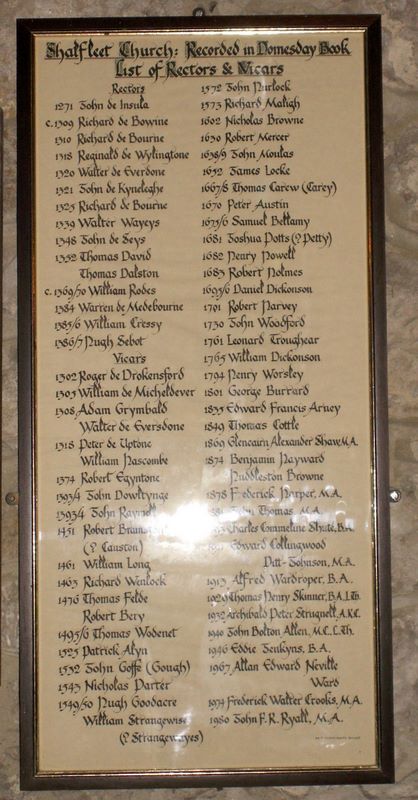 Shalfleet Church: Recorded in Domesday Book
List of Rectors & Vicars
Rectors
1271 John de Insula
c.1309 Richard de Bowine
1310 Richard de Bourne
1318 Reginald de Wylingtone
1320 Walter de Everdone
1321 John de Kyneleghe
1325 Richard de Bourne
1339 Walter Wayeys
1348 John de Seys
1352 Thomas David
Thomas Dalston
c.1369/70 William Rodes
1384 Warren de Medebourne
1385/6 William Cressy
1386/7 Hugh Sebot
Vicars
1302 Roger de Drokensford
1305 William de Micheldever
1308 Adam Grymbald
Walter de Eversdone
1318 Peter de Uptone
William Hascombe
1374 Robert Eqyntone
1393/4 John Dowltynge
1393/4 John
1451 Robert
(? Causton)
1461 William Long
1463 Richard Wenlock
1476 Thomas Felde
Robert Bery
1495/6 Thomas Wodenet
1525 Patrick Alyn
1532 John Goffe (Gough)
1543 Nicholas Parter
1549/50 Hugh Goodacre
William Strangewise
(? Strangewayes)
1572 John Hurlock
1573 Richard Maligh
1602 Nicholas Browne
1630 Robert Mercer
1638/9 John Moulas
1652 James Locke
1667/8 Thomas Carew (Carey)
1670 Peter Austin
1675/6 Samuel Bellamy
1681 Joshua Potts (? Petty)
1682 Henry Howell
1683 Robert Holmes
1695/6 Daniel Dickonson
1701 Robert Harvey
1730 John Woodford
1761 Leonard Troughear
1765 William Dickonson
1794 Henry Worsley
1801 George Burrard
1835 Edward Francis Arney
1849 Thomas Cottle
1869 Glencairn Alexander Shaw, M.A.
1874 Benjamin Hayward
Huddleston Browne
1878 Frederick Harper, M.A.
John Thomas, M.A.
Charles Commeline Shute, B.A.
Edward Collingwood
Pitt-Johnson, M.A.
1913 Alfred Wardroper, B.A.
1926 Thomas Henry Skinner, B.A., L.Th.
1932 Archibald Peter Strugnell, A.K.C.
1940 John Bolton Allen, M.C., L.Th.
1946 Eddie Jenkyns, B.A.
1967 Allan Edward Neville
Ward
1974 Frederick Walter Crooks, M.A.
1980 John F. R. Ryall, M.A.